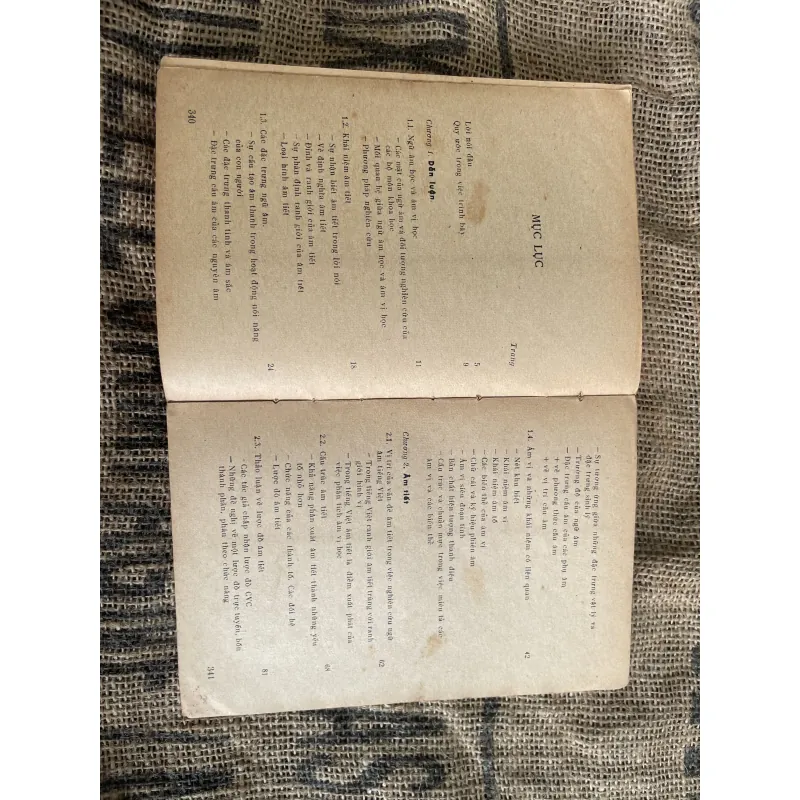 MỤC LỤC
Trang
Lời nói đầu 5
Quy ước trong việc trình bày 9
Chương 1 Dẫn luận
1.1. Ngữ âm học và âm vị học 11
— Các mặt của ngữ âm và đối tượng nghiên cứu của
các bộ môn khoa học
— Mối quan hệ giữa ngữ âm học và âm vị học
— Phương pháp nghiên cứu
1.2. Khái niệm âm tiết 18
— Sự nhận biết âm tiết trong lời nói
— Về định nghĩa âm tiết
— Đỉnh và ranh giới của âm tiết
— Sự phân định ranh giới của âm tiết
— Loại hình âm tiết
1.3. Các đặc trưng ngữ âm. 24
— Sự cấu tạo âm thanh trong hoạt động nói năng
của con người
— Các đặc trưng thanh tính và âm sắc
— Đặc trưng cấu âm của các nguyên âm
340
Sự tương ứng giữa những đặc trưng vật lý và
đặc trưng sinh lý
— Trường độ của ngữ âm
— Đặc trưng cấu âm của các phụ âm
+ về phương thức cấu âm
+ về vị trí cấu âm
1.4. Âm vị và những khái niệm có liên quan 42
— Nét khu biệt
— Khái niệm âm vị
— Khái niệm âm tố
— Các biến thể của âm vị
— Chữ cái và ký hiệu phiên âm
— Âm vị siêu đoạn tính
— Bản chất hiện tượng thanh điệu
— Cấu trúc và chuẩn mực trong việc miêu tả các
âm vị và các biến thể
Chương 2. Âm tiết
2.1. Vị trí của vấn đề âm tiết trong việc nghiên cứu ngữ
âm tiếng Việt 62
— Trong tiếng Việt ranh giới âm tiết trùng với ranh
giới hình vị
— Trong tiếng Việt âm tiết là điểm xuất phát của
việc phân tích âm vị học
2.2. Cấu trúc âm tiết 68
— Khả năng phân xuất âm tiết thành những yếu
tố nhỏ hơn
— Chức năng của các thành tố. Các đối hệ
— Lược đồ âm tiết
2.3. Thảo luận về lược đồ âm tiết 81
— Các tác giả chấp nhận lược đồ CVC.
— Những đề nghị về một lược đồ trực tuyến, bốn
thành phần, phân theo chức năng
341